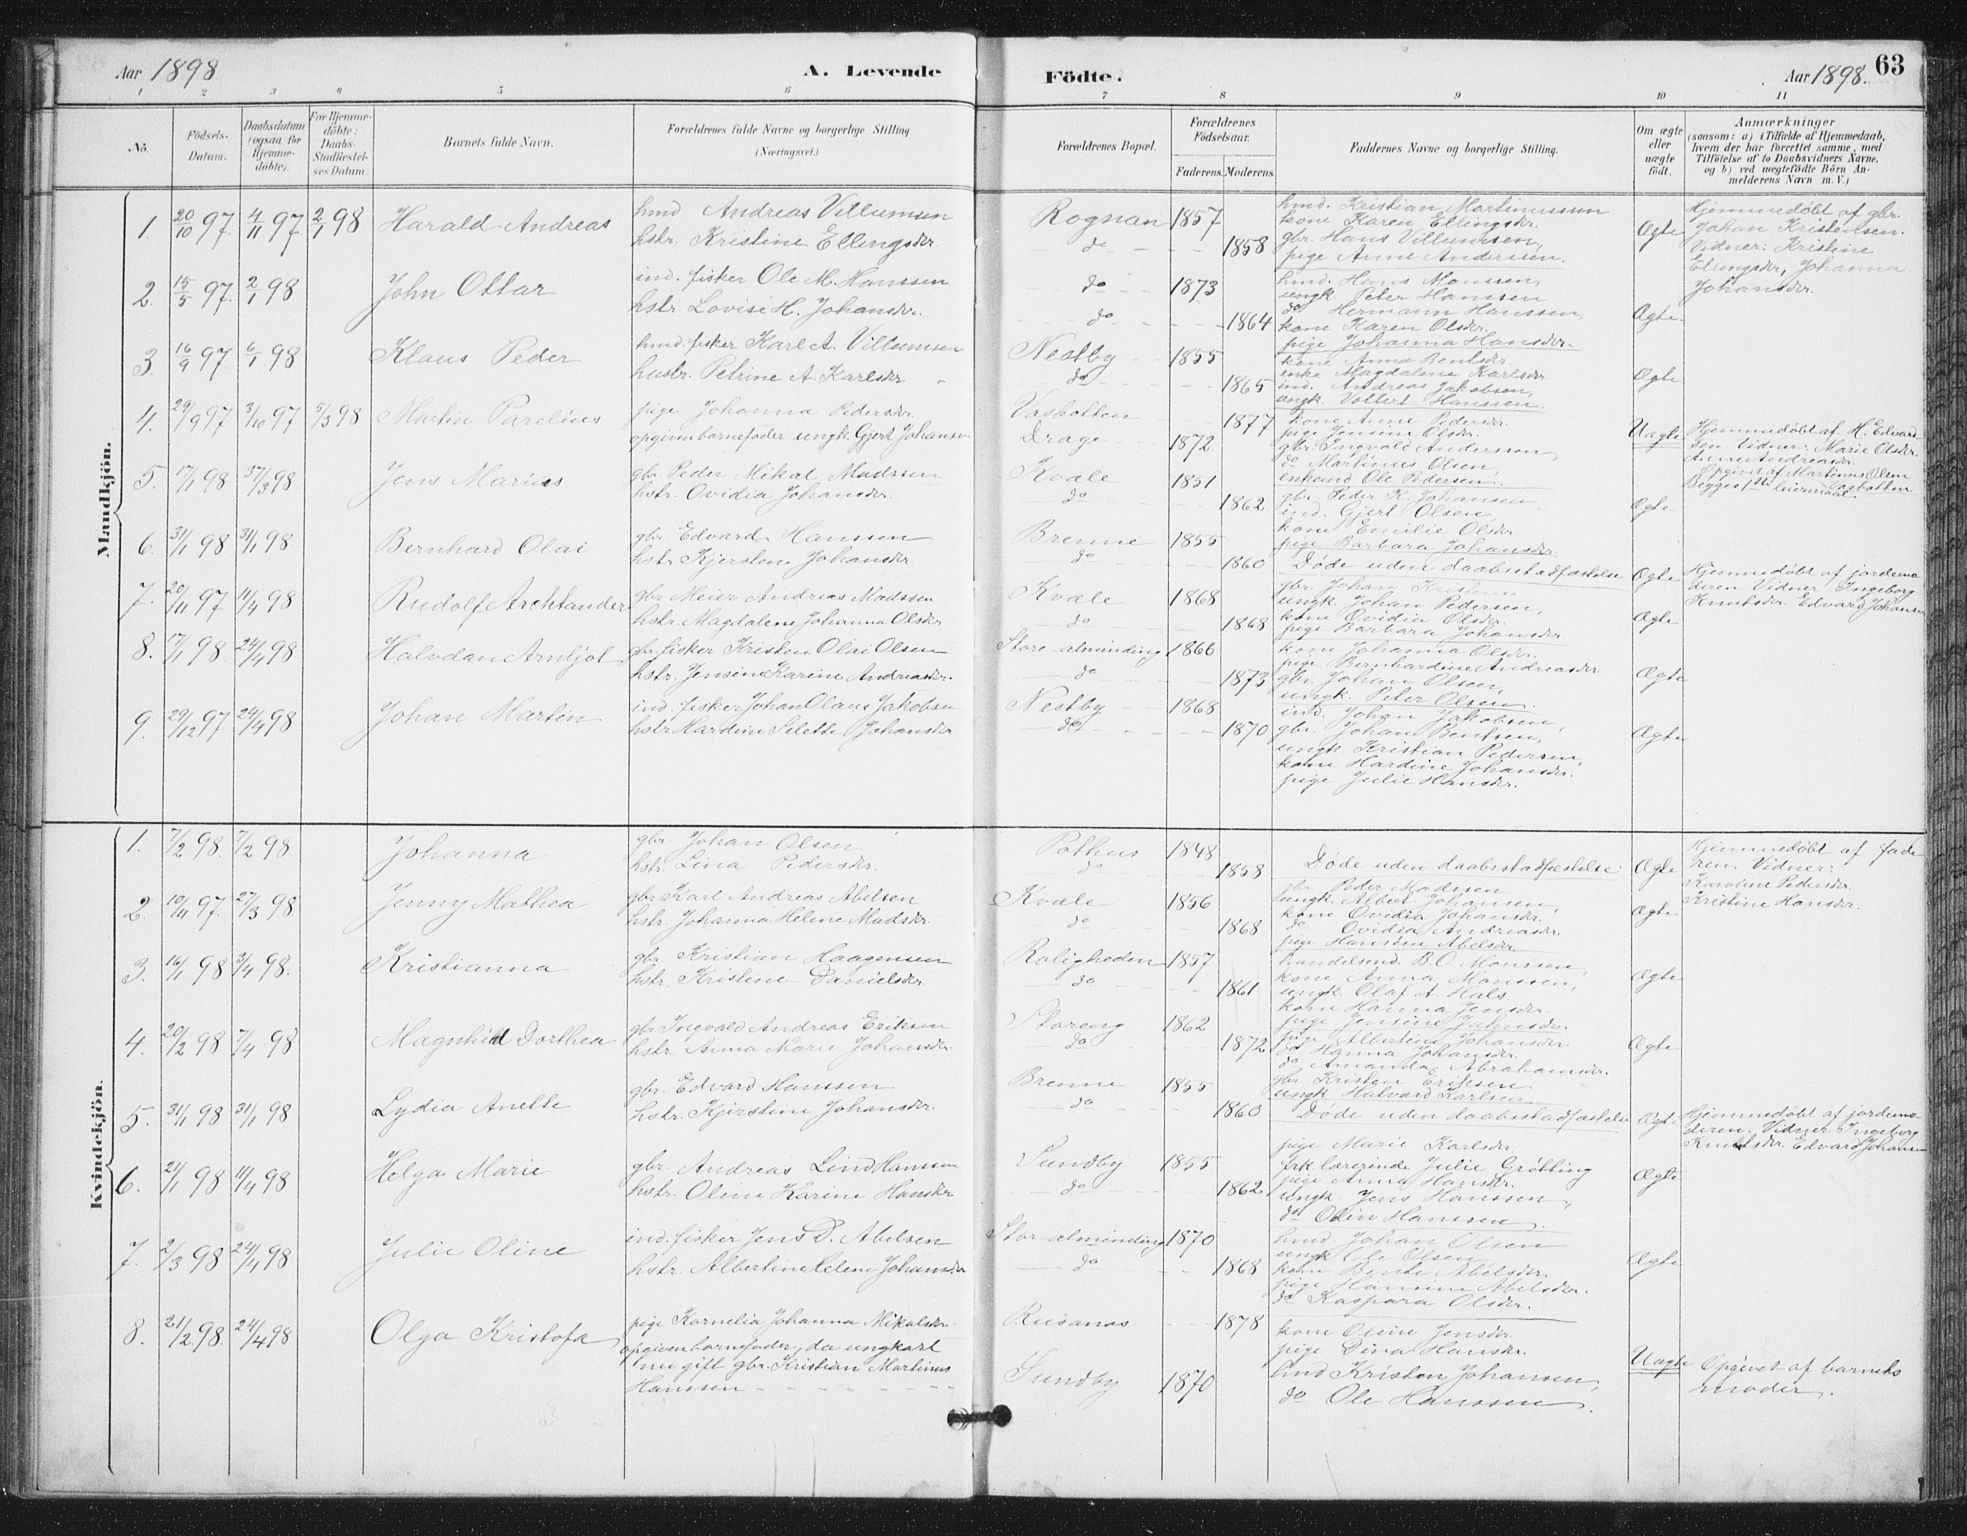 Aar 1898
A. Levende
Födte.
Aar 1898.
63
1 2 3 4 5 6 7 8 9 10 11
No.
Födsels-Datum.
Daabsdatum (ogsaa for Hjemmedöbte).
For Hjemmedöbte: Daabs-Stadfæstelses Datum.
Barnets fulde Navn.
Forældrenes fulde Navne og borgerlige Stilling.
(Næringsvei.)
Forældrenes Bopæl.
Forældrenes Födselsaar.
Faderens. Moderens.
Faddernes Navne og borgerlige Stilling.
Om ægte eller uægte födt.
Anmærkninger
(saasom: a) i Tilfælde af Hjemmedaab, hvem der har forrettet samme, med Tilföielse af to Daabsvidners Navne, og b) ved uægtefödte Börn Anmelderens Navn m. V.)
Mandkjön.
1. 20/10 97. 4/11 97. 2/1 98 Harald Andreas
hmd Andreas Villumsen
hstr. Kristine Ellingsdr.
Rognan 1857
do 1858
hmd. Kristian Martinussen
kone Karen Ellingsdr.
gbr. Hans Villumsen,
pige Anne Andersen.
Ægte
Hjemmedøbt af gbr.
Johan Kristensen.
Vidner: Kristine
Ellingsdr, Johanna
Johansdr.
2. 15/5 97. 2/1 98 John Ottar
ind. fisker Ole M. Hanssen
hstr. Lovise H. Johansdr.
do 1873
do 1864
hmd. Hans Monssen,
ungk. Peter Hanssen
do Hermann Hanssen,
kone Karen Olsdr.
pige Johanna Hansdr.
Ægte.
3. 16/9 97. 6/1 98 Klaus Peder
hmd. fisker Karl A. Villumsen
hustr. Petrine A. Karlsdr
Nestby 1855
do 1865
kone Anna Bentsdr.
enke Magdalene Karlsdr.
ind. Andreas Jakobsen,
ungk. Volbert Hanssen.
Ægte
4. 29/9 97 3/10 97 5/3 98 Martin Parelius
pige Johanna Pedersdr.
opgiven barnefader ungk. Gjert Johansen
Vasbotten 1877
Drage 1872.
kone Anne Pedersdr.
pige Jensine Olsdr.
gbr. Ingvald Anderssen,
do Martinus Olsen,
enkemd Ole Pedersen.
Uægte
Hjemmedøbt af H. Edvard
sen Vidner: Marie Olsdr.
Anne Andreasdr.
Opgivet af Martinus Olsen
Vasbotten
Begges 1ste leiermaal.
5. 17/1 98 27/3 98. Jens Marius
gbr. Peder Mikal Madssen
hstr. Ovidia Johansdr.
Kvale 1851
do 1862
gbr. Peder K. Johansen
ind. Gjert Olsen,
kone Emilie Olsdr.
pige Barbara Johansdr.
Ægte
6. 31/1 98 31/1 98 Bernhard Olai
gbr. Edvard Hanssen
hstr. Kjersten Johansdr.
Brenne 1855
do 1860
Døde uden daabsstadfæstelse
Ægte
Hjemmedøbt af jordemo
deren Vidner Ingeborg
Knutsdr. Edvard Johansen
7. 20/11 97 11/4 98 Rudolf Archtander
gbr Meier Andreas Madssen
hstr. Magdalene Johanna Olsdr.
Kvale 1868
do 1868
gbr. Johan
ungk. Johan Pedersen,
kone Ovidia Olsdr.
pige Barbara Johansdr
Ægte
8. 17/1 98. 24/4 98 Halvdan Arntjot
gbr. fisker Kristen Olai Olsen
hstr. Jensine Karine Andreasdr.
Store-alminding 1866
do 1873
kone Johanna Olsdr.
pige Bernhardine Andreasdr
gbr. Johan Olsen,
ungk. Peter Olsen.
Ægte
9. 29/12 97 24/4 98 Johan Martin
ind. fisker Johan Olaus Jakobsen
hstr. Hardine Selette Johansdr
Nestby 1868
do 1870
ind. Johan Jakobsen,
gbr. Johan Bentsen,
ungk. Kristian Pedersen,
kone Hardine Johansdr.
pige Julie Hansdr.
Ægte
Kvindekjön.
1. 7/2 98. 7/2 98 Johanna
gbr. Johan Olsen
hstr. Lina Pedersdr.
Pothus 1848
do 1858
Døde uden daabsstadfæstelse
Ægte
Hjemmedøbt af fade
ren. Vidner:
Karoline Pedersdr.
Kristine Hansdr.
2. 10/11 97. 27/3 98. Jenny Mathea
gbr Karl Andreas Abelsen
hstr Johanna Helene Madsdr.
Kvale 1856
do 1868
gbr. Peder Madssen
ungk. Albert Johansen,
kone Ovidia Johansdr.
do Ovidia Andreasdr.
pige Hansine Abelsdr
Ægte
3. 16/1 98 3/4 98. Kristianna
gbr. Kristian Haagensen
hstr. Kristine Danielsdr.
Roligheden 1857
do 1861
handelsmd. B.O. Monssen,
kone Anna Monssen,
ungk. Olaf A. Hals
kone Hanna Jensdr.
pige Jensine Johnsdr.
Ægte
4. 20/2 98 7/4 98 Magnhild Dorthea
gbr Ingvald Andreas Eriksen
hstr. Anna Marie Johansdr.
Storeng 1862
do 1872
pige Albertine Johansdr.
do Hanna Johansdr.
do Amanda Abrahamsdr.
gbr. Kristen Eriksen
ungk Halvard Karlsen
Ægte
5. 31/1 98 31/1 98 Lydia Anette
gbr. Edvard Hanssen
hstr. Kjerstine Johansdr.
Brenne 1855
do 1860
Døde uden daabsstadfæstelse
Ægte
Hjemmedøbt af jordemo-
deren. Vidner Ingeborg
Knutsdr. Edvard Johansen
6. 21/1 98 11/4 98 Helga Marie
gbr. Andreas Lind Hanssen
hstr. Oline Karine Hansdr
Sundby 1855
do 1862
pige Marie Karlsdr.
frk. lærerinde Julie Grøtting
pige Anna Hansdr.
ungk. Jens Hanssen,
do Olin Hanssen.
Ægte
7. 2/3 98 24/4 98 Julie Oline
ind. fisker Jens D. Abelsen
hstr. Albertine Selene Johansdr
Stor-alminding 1870
do 1868
hmd. Johan Olsen
ungk Ole Olsen
kone Bente Abelsdr.
pige Hansine Abelsdr.
do Kaspara Olsdr.
Ægte
8. 21/2 98. 24/4 98 Olga Kristofa
pige Kornelia Johanna Mikalsdr.
opgiven barnefader, da ungkarl
nu gift gbr. Kristian Martinus
Hanssen
Rusanes 1878
Sundby 1870
kone Oline Jensdr.
pige Dina Hansdr.
hmd Kristen Johansen,
do Ole Hanssen.
Uægte
Opgivet af barnets
moder.